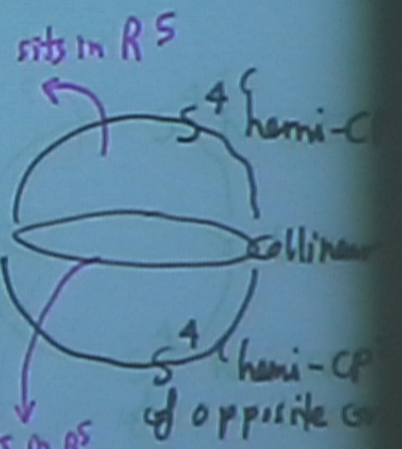 sits in R⁵
S⁴ (hemi-C
Collinear
S⁴ (hemi-CP
of opposite